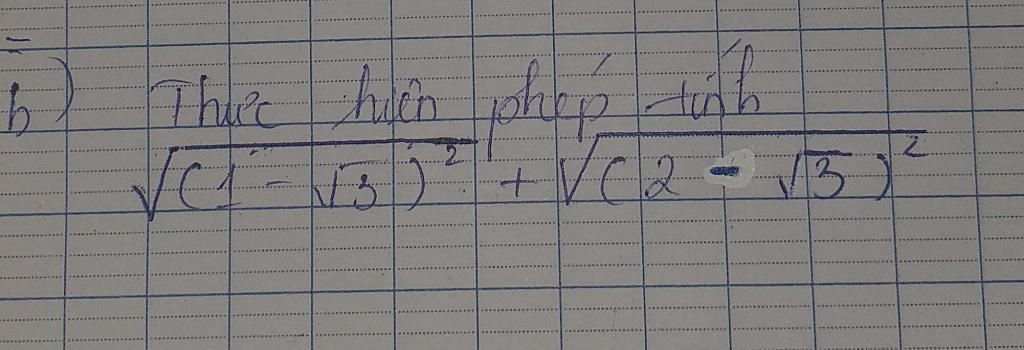 =
b) Thực hiện phép tính
√(1 - √3)² + √(2 - √3)²